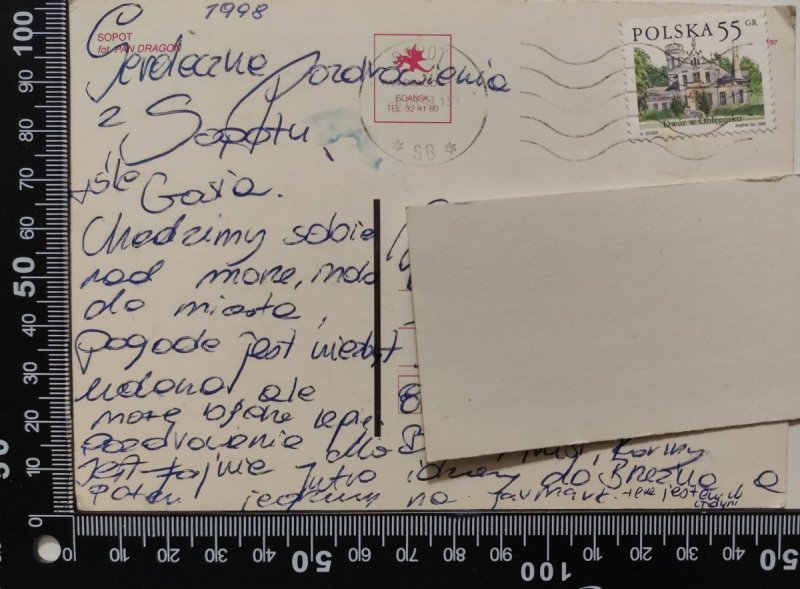 1998
SOPOT
fot. PAN DRAGON
GDAŃSK
TEL. 52 41 60
SOPOT
SB
POLSKA 55 GR
Dwór w Oblęgorku
97
Serdeczne Pozdrowienia
z Sopotu
śle Gosia.
Chodzimy sobie
nad morze, 
do miasta,
pogoda jest
udana ale
może będzie
pozdrowienia dla
Jest fajnie Jutro idziemy do Brzeźna a
potem jedziemy na Jarmark. teraz jesteśmy w
Gdyni
100
90
80
70
60
50
40
30
20
10
0
0
10
20
30
40
50
60
70
80
90
100
10
20
30
40
50